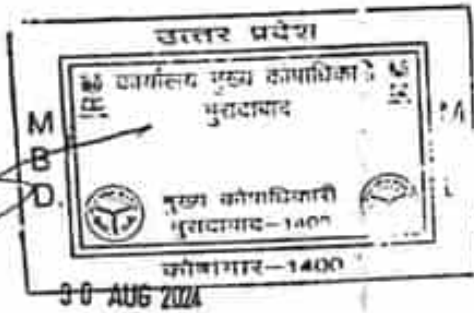 उत्तर प्रदेश
कार्यालय मुख्य कोषाधिकारी
मुरादाबाद
M
B
D.
मुख्य कोषाधिकारी
मुरादाबाद-1400
कोषागार-1400
30 AUG 2024